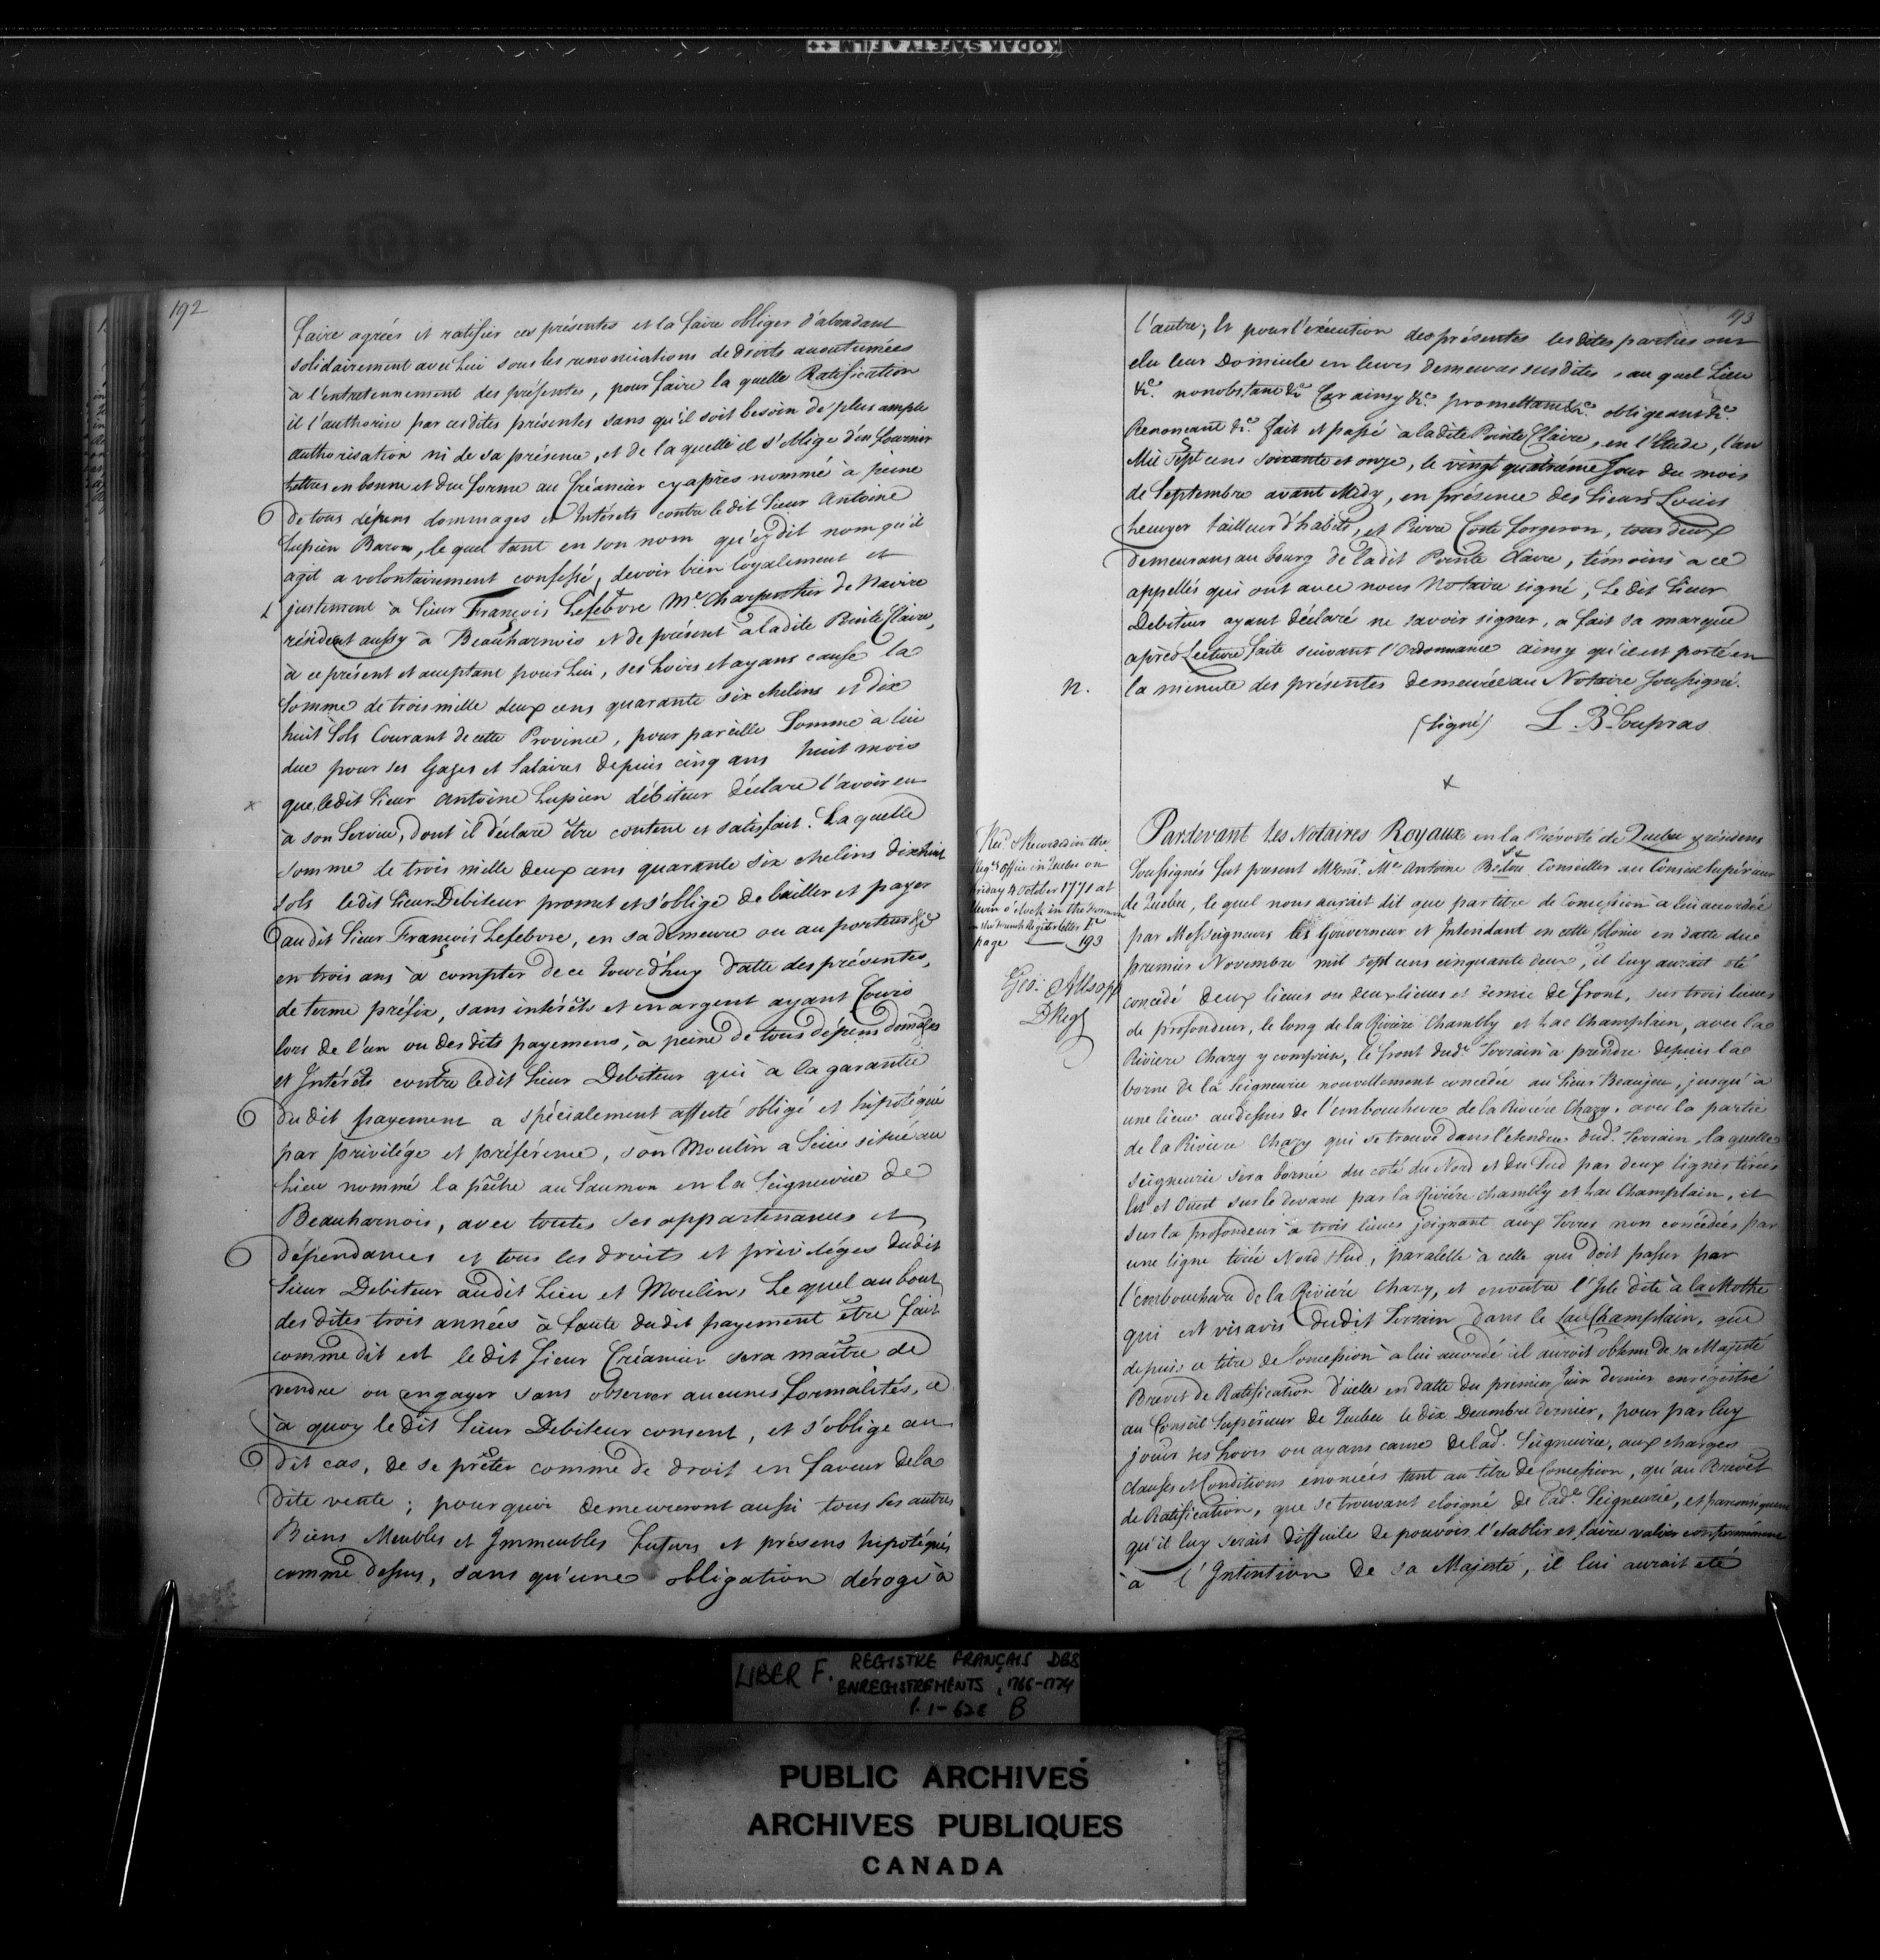 KODAK SAFETY FILM
192
faire agréer et ratifier ces présentes et la faire obliger d'abondant
solidairement avec Lui sous les renonciations de droits accoutumées
à l'entretennement des présentes, pour faire la quelle Ratification
il l'authorise par ces dites présentes sans qu'il soit besoin de plus ample
authorisation ni de sa présence, et de la quelle il s'oblige d'en fournir
Lettres en bonne et due forme au Créancier cyaprès nommé à peine
de tous dépens dommages et Intérets contre le dit Sieur Antoine
Lupien Baron, le quel tant en son nom qu'audit nom qu'il
agit a volontairement confessé, devoir bien loyalement et
justement à Sieur François Lefebvre Me. Charpentier de Navire
résident aussy à Beauharnois et de présent à ladite Pointe Claire,
à ce présent et acceptant pour Lui, ses hoirs et ayans cause la
Somme de trois mille deux cens quarante six chelins et dix
huit Sols Courant de cette Province, pour pareille Somme à lui
due pour ses Gages et Salaires depuis cinq ans huit mois
x que ledit Sieur Antoine Lupien débiteur déclare l'avoir eu
à son Service, dont il déclare être content et satisfait. La quelle
somme de trois mille deux cens quarante six chelins dixhuit
sols ledit Sieur Debiteur promet et s'oblige de bailler et payer
audit Sieur François Lefebvre, en sa demeure ou au porteur &c
en trois ans à compter de ce jourd'huy datte des présentes,
de terme préfix, sans intérêts et en argent ayant Cours
lors de l'un ou des dits payemens, à peine de tous dépens domages
et Intérêts contre ledit Sieur Debiteur qui à la garantie
du dit payement a spécialement affecté obligé et hipotéqué
par privilége et préférence, son Moulin à Scie situé au
Lieu nommé la pêche au Saumon en la Seigneurie de
Beauharnois, avec toutes ses appartenances et
dépendances et tous les droits et priviléges dudit
Sieur Debiteur audit Lieu et Moulin, Le quel au bout
des dites trois années à faute dudit payement être fait
comme dit est le dit Sieur Créancier sera maître de
vendre ou engager sans observer aucunes formalités, ce
à quoy le dit Sieur Debiteur consent, et s'oblige au
dit cas, de se prêter comme de droit en faveur de la
dite vente; pourquoi demeureront aussi tous ses autres
Biens Meubles et Immeubles futurs et présens hipotéqués
comme dessus, sans qu'une obligation déroge à
193
l'autre; Et pour l'exécution des présentes les dites parties ont
elu leur Domicile en leurs demeures susdites, au quel Lieu
&c. nonobstant &c. Car ainsy &c. promettant &c. obligeant &c.
Renonçant &c. Fait et passé à ladite Pointe Claire, en l'Etude, l'an
Mil Sept cens soixante et onze, le vingt quatriéme Jour du mois
de Septembre avant Midy, en présence des Sieurs Louis
heuyer tailleur d'habits, et Pierre Coste forgeron, tous deux
demeurans au bourg de ladit Pointe Claire, témoins à ce
appellés qui ont avec nous Notaire signé, Le dit Sieur
Debiteur ayant déclaré ne savoir signer, a fait sa marque
après Lecture faite suivant l'Ordonnance ainsy qu'il est porté en
n. la minute des présentes demeurée au Notaire Soussigné.
(Signé) L. B. Soupras
x
Rec. & Recorded in the
Reg.rs Office in Quebec on
Friday 4 October 1771 at
Eleven o'clock in the forenoon
in the french Register letter F.
page 193
Geo: Allsopp
D Reg
Pardevant Les Notaires Royaux en la Prévosté de Quebec y résidens
Soussignés fut present Mons. Me. Antoine Bedou Conseiller au Conseil Supérieur
de Quebec, le quel nous aurait dit que par titre de Concession à lui accordée
par Messeigneurs les Gouverneur et Intendant en cette Colonie en datte du
premier Novembre mil sept cens cinquante deux, il luy aurait été
concédé deux lieues ou deux lieues et demie de front, sur trois lieues
de profondeur, le long de la Riviere Chambly et Lac Champlain, avec la
Riviere Chazy y comprise, le front dud. Terrain à prendre depuis la
borne de la Seigneurie nouvellement concedée au Sieur Beaujeu, jusqu'à
une lieue au dessus de l'embouchure de la Riviére Chazy, avec la partie
de la Riviere Chazy qui se trouve dans l'etendue dud. Terrain la quelle
seigneurie sera bornée du coté du Nord et du Sud par deux lignes tirées
Est et Ouest sur le devant par la Riviére Chambly et Lac Champlain, et
sur la profondeur à trois lieues joignant aux Terres non concédées par
une ligne tirée Nord Sud, paralelle à celle qui doit passer par
l'embouchure de la Riviére Chazy, et en outre l'Isle dite à la Mothe
qui est visavis dudit Terrain dans le Lac Champlain, que
depuis ce titre de Concession à lui accordé il auroit obtenu de sa Majesté
Brevet de Ratification d'icelle en datte du premier Juin dernier enrégistré
au Conseil Supérieur de Quebec le dix Decembre dernier, pour par luy
jouir ses hoirs ou ayans cause de lad. Seigneurie, aux charges
clauses & Conditions enoncées tant au titre de Concession, qu'au Brevet
de Ratification, que se trouvant eloigné de lade. Seigneurie, et par conséquent
qu'il luy serait difficile de pouvoir l'etablir et faire valoir conformément
à l'Intention de sa Majesté, il lui aurait eté
LIBER F. REGISTRE FRANÇAIS DES
ENREGISTREMENTS, 1766-1774
P. 1-628 B
PUBLIC ARCHIVES
ARCHIVES PUBLIQUES
CANADA